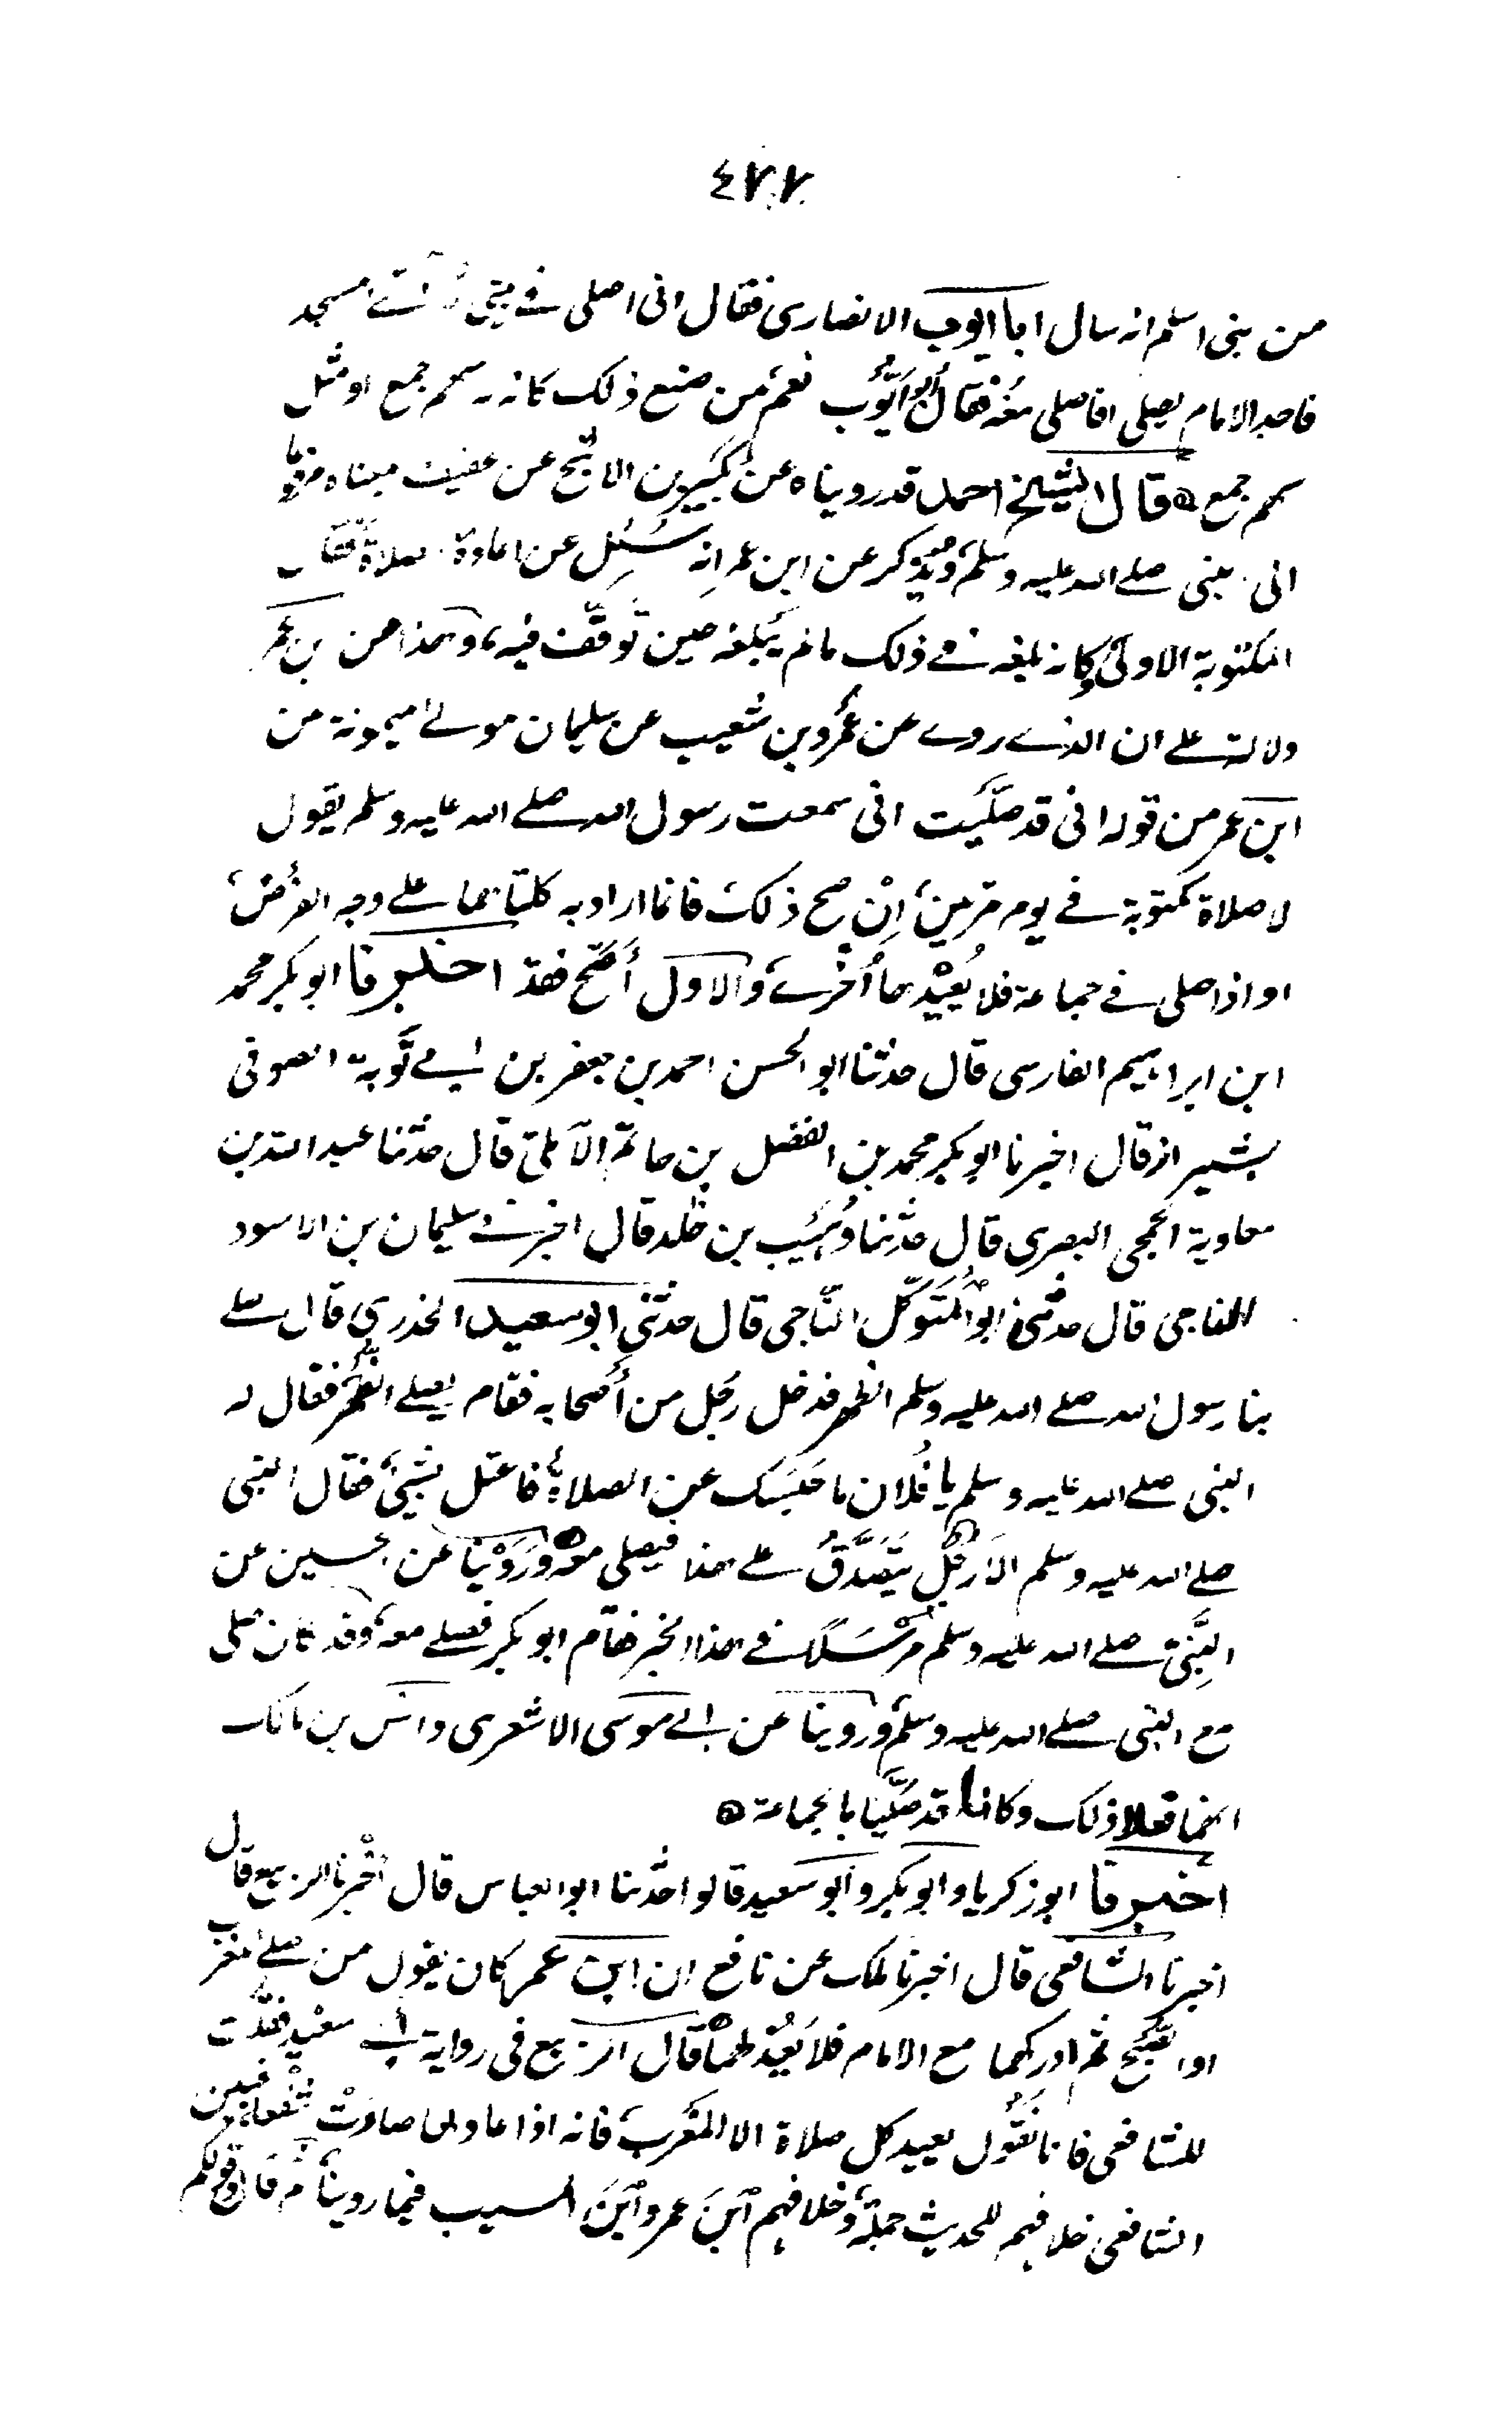 ٤٧٧
من بنى اسلم انه سال ابا ايوب الانصارى فقال انى اصلى فى بيتى المسجد
فاجد الامام يصلى افاصلى معه فقال أبو أيُّوب نعم من صنع ذلك كان له سهم جمع او مثل
سهم جمع قال الشيخ احمد قد رويناه عن بُكَير بن الاشج عن عفيف مرفوعا
الى النبى صلى الله عليه وسلم ويذكر عن ابن عمر انه سُئِل عن اعادة صلاة فقال
المكتوبة الاولى وكانه بلغه فى ذلك ما لم يَبلغه حين تَوقَّف فيه وهذا من بن عمر
دلالة على ان الذى روى عن عَمرو بن شعيب عن سليمان مولى ميمونة عن
ابن عمر من قوله انى قد صلّيت انى سمعت رسول الله صلى الله عليه وسلم يقول
لا صلاة مكتوبة فى يوم مرتين اِنْ صح ذلك فانما اراد به كلتاهما على وجه الفرض
او اذا صلى فى جماعة فلا يُعيْدها أُخْرى والاول أَصَح فقد اخبرنا ابو بكر محمد
ابن ابراهيم الفارسى قال حدثنا ابو الحسن احمد بن جعفر بن ابى تَوبة الصوفى
بشيراز قال اخبرنا ابو بكر محمد بن الفضل بن حاتم الآملى قال حدثنا عبد الله بن
معاوية الجمحى البصرى قال حدثنا وُهَيْب بن خلد قال اخبرنى سليمان بن الاسود
الناجى قال حدثنى ابو المُتَوَكّل النّاجى قال حدثنى ابو سعيد الخدرى قال صلى
بنا رسول الله صلى الله عليه وسلم الظهر فدخل رجُل من أَصحابه فقام يصلى الظهر فقال له
النبى صلى الله عليه وسلم يا فُلان ما حَبَسَك عن الصلاة فاعتل بشىء فقال النبى
صلى الله عليه وسلم الا رَجُل يَتَصَدَّقُ على هذا فيصلى معه ورَوَيْنا عن الحسن عن
النَّبِى صلى الله عليه وسلم مُرْسَلًا فى هذا الخبر فقام ابو بكر فصلى معه وقد كان صلى
مع النبى صلى الله عليه وسلم وروينا عن ابى موسى الاشعرى وانس بن مالك
انهما فعلا ذلك وكانا قد صلَّيا بالجماعة
اخبرنا ابو زكريا وابو بكر وأبو سعيد قالوا حدّثنا ابو العباس قال أخبرنا الربيع قال
اخبرنا الشافعى قال اخبرنا ملك عن نافع ان ابن عمر كان يقول من صلى المغرب
او الصُّبح ثم ادركهما مع الامام فلا يَعُدْ لهما قال الربيع فى رواية ابى سعيد فقلت
للشافعى فانا نَقُول يعيد كل صلاة الا المَغرب فانه اذا عاد لها صارَتْ شَفْعا فبين
الشافعى خلافهم للحديث جملة وخلافهم ابْنَ عمر وابْنَ المسيب فيما روينا ثم قال وقولكم